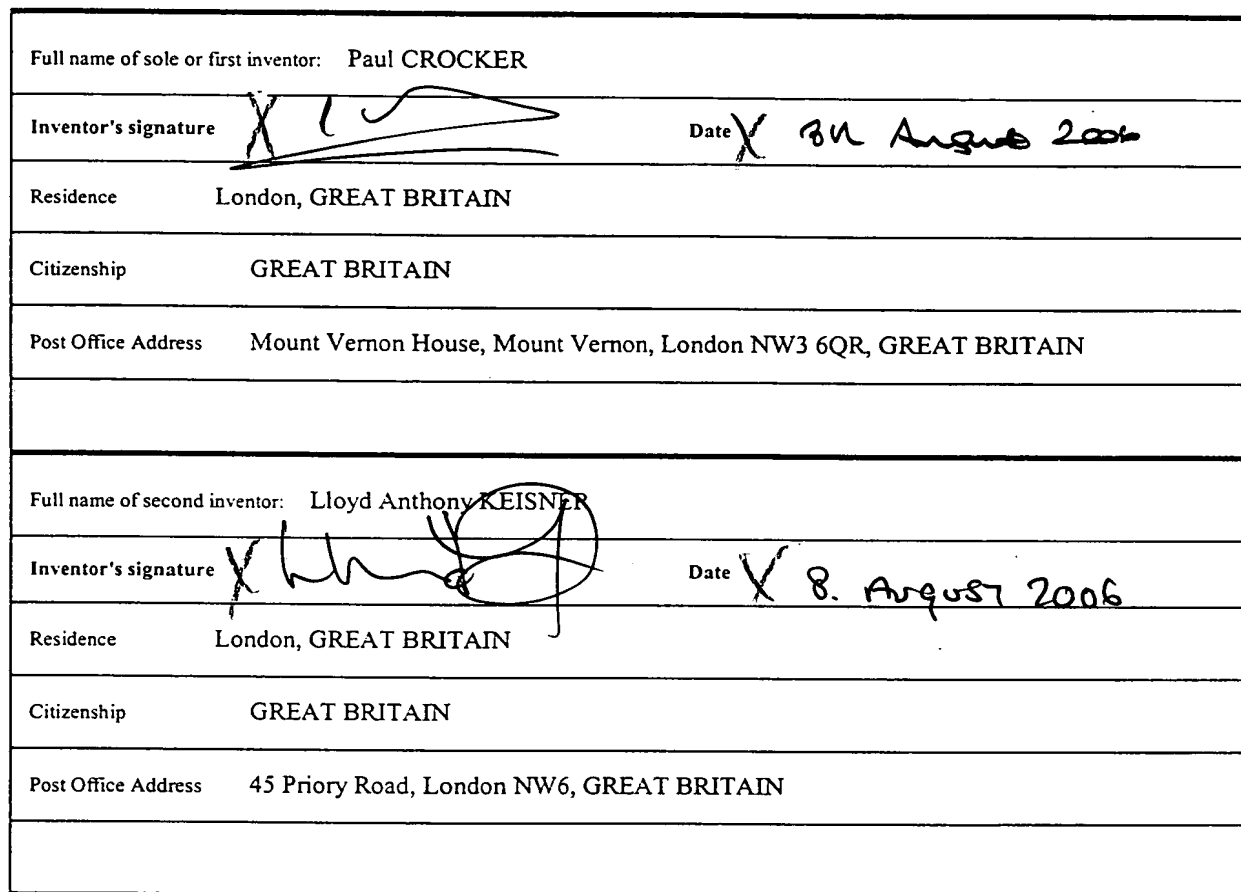 Full name of sole or first inventor: Paul CROCKER
Inventor's signature X Date X August 2006
Residence London, GREAT BRITAIN
Citizenship GREAT BRITAIN
Post Office Address Mount Vernon House, Mount Vernon, London NW3 6QR, GREAT BRITAIN
Full name of second inventor: Lloyd Anthony KEISNER
Inventor's signature X Date X 8. August 2006
Residence London, GREAT BRITAIN
Citizenship GREAT BRITAIN
Post Office Address 45 Priory Road, London NW6, GREAT BRITAIN